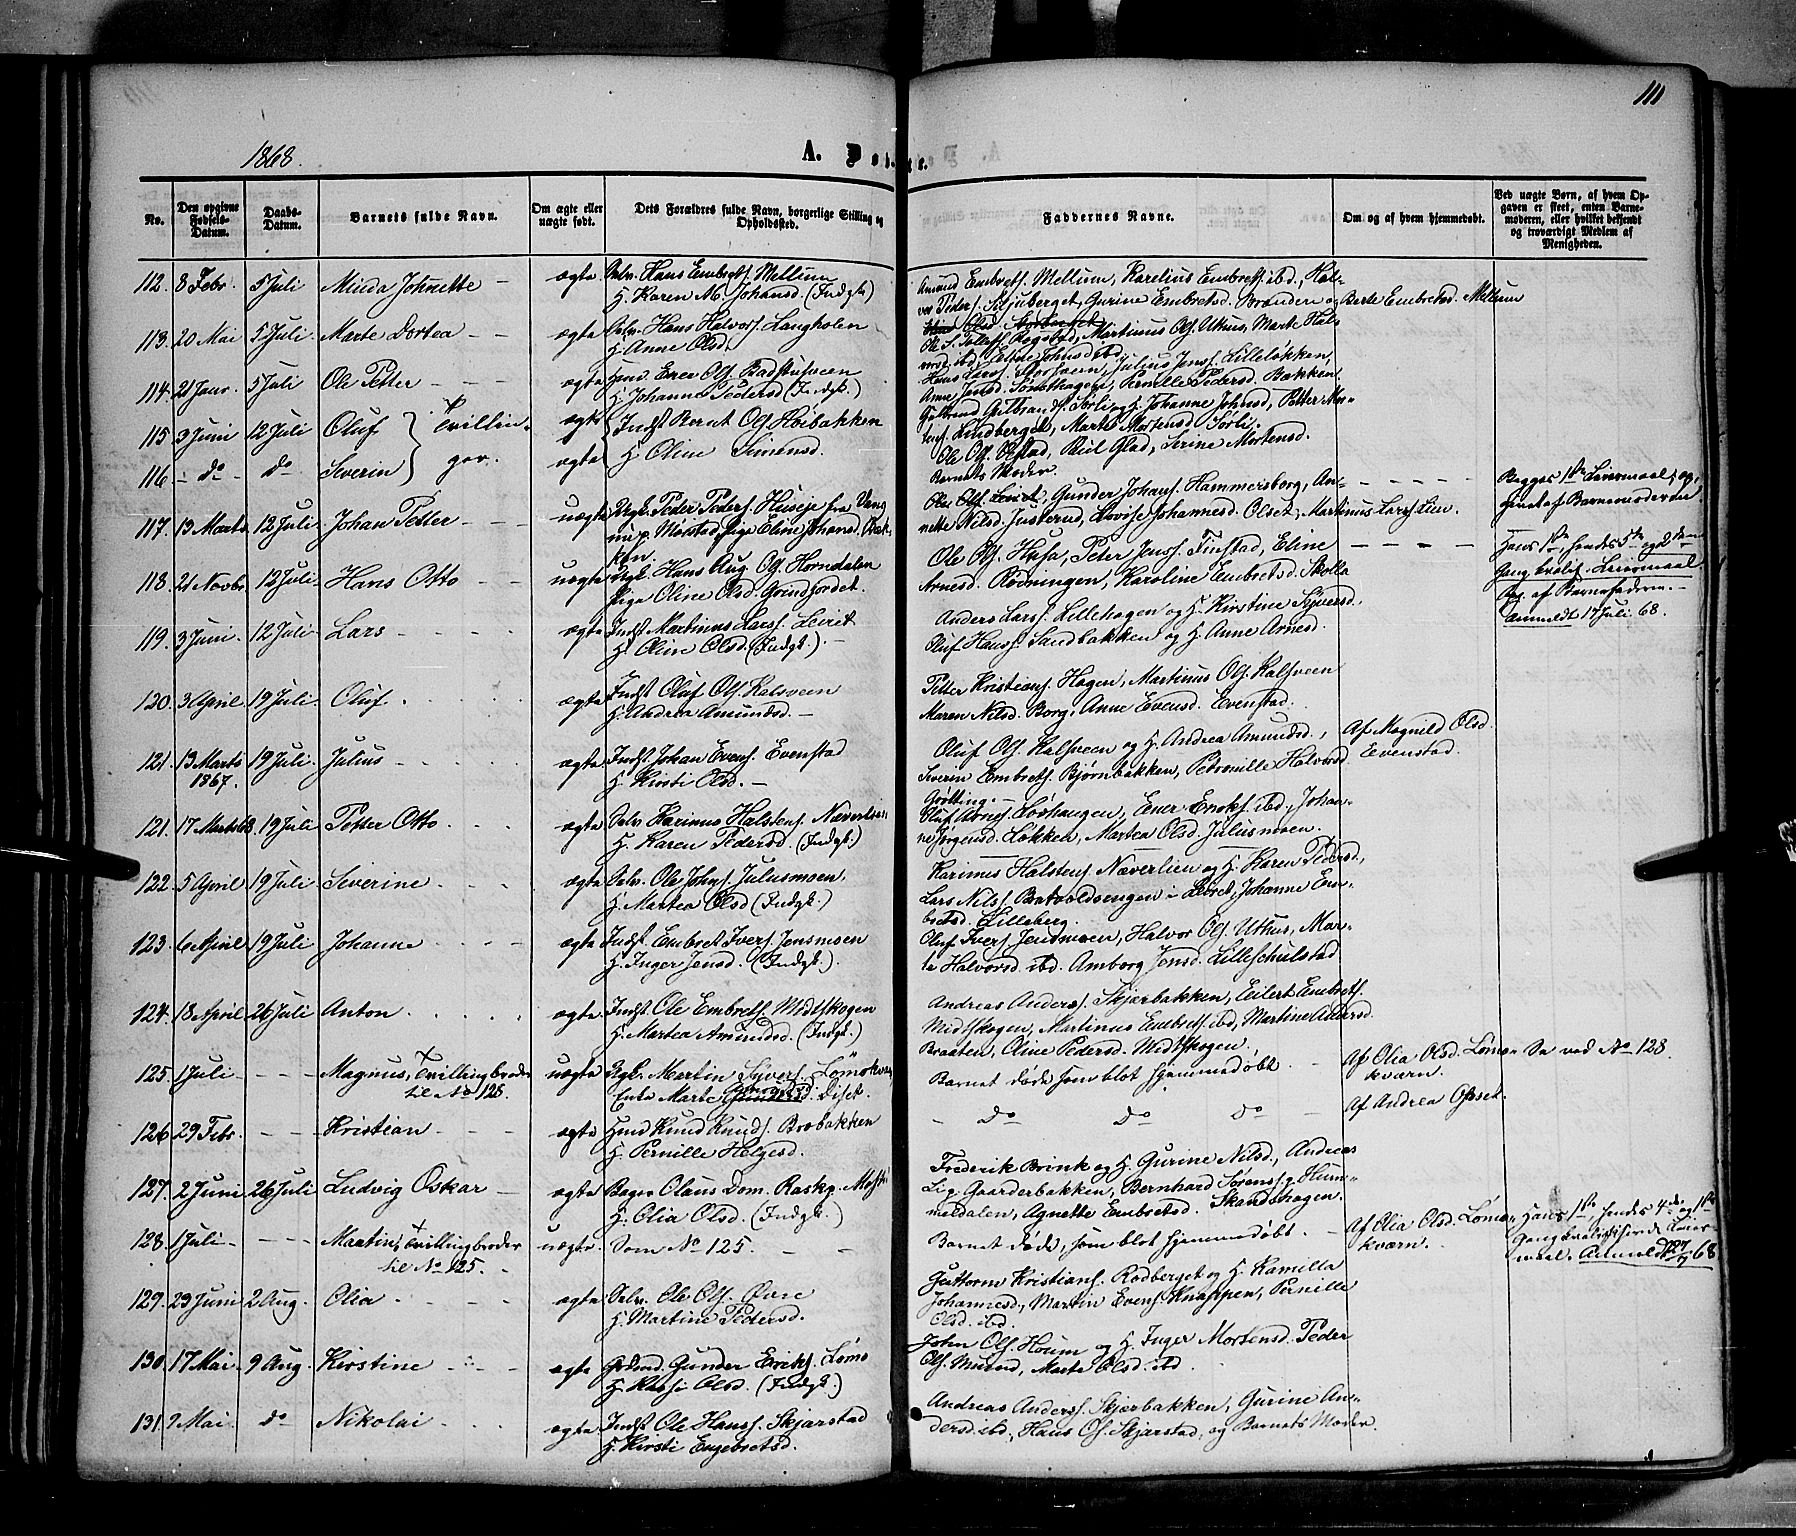 111
1868.
A. Døbte.
No.
Den opgivne Fødsels-Datum.
Daabs-Datum.
Barnets fulde Navn.
Om ægte eller uægte født.
Dets Forældres fulde Navn, borgerlige Stilling og Opholdssted.
Faddernes Navne.
Om og af hvem hjemmedøbt.
Ved uægte Børn, af hvem Opgaven er skeet, enten Barnemoderen, eller hvilket bekjendt og troværdigt Medlem af Menigheden.
112. 8 Febr. 5 Juli Minda Johnette — ægte. Selv. Hans Embrets. Mellum
H. Karen M. Johansd. (Indgk.)
Amund Embrets. Mellum, Karelius Embrets. ibd., Hal-
vor Peders. Gurine Embretsd. Brænden og Berte Embretsd. Mellum
113. 20 Mai 5 Juli Marte Dortea — — ægte Selv. Hans Halvors. Langholen
H. Anne Olsd.
Ole S. Rogstad, Martinus Ols. Uthus, Marte Hal-
vorsd. ibd., Johnsd. ibd.
114. 21 Janr. 5 Juli Ole Petter — — — ægte Ener Ols. Badstuveen
H. Johanne Pedersd. (Indgk.)
Hans Larss. Julius Jenss. Lilleløkken,
Anne Jensd. Pernille Pedersd. Bækken
115 3 Juni 12 Juli Oluf } Tvillin- ægte Indst Bernt Ols. Høibakken
Sørli og H. Johanne Johnsd., Petter Mor-
tens. Lindberget, Marte Mortensd. Sørli.
116 — do — do Severin } ger. ægte H. Oline Simensd.
Ole Ols. Paul Glad, Serine Mortensd.
Barnets Moder.
117. 13 Marts 12 Juli Johan Petter — — uægte Ugk. Peter Peders. fra Vang
Pige Eline Johans.
Gunder Johans. Hammersborg, An- — — — — —
nette Nilsd. Justerud, Lovise Johannesd. Olset, Martinus Larss. Lien.
Begges 1ste Leiermaal, og
118. 21 Novbr. 12 Juli Hans Otto uægte Ugk. Hans Aug. Ols. Horndalen
Pige Oline Olsd. Grindfordet.
Ole Ols. Peter Jenss. Finstad, Eline — — — —
Arnesd. Rødningen, Karoline Embretsd. Skolla
Hans 1ste, hendes 5te
Gang Leiermaal
Opg. af Barnefaderen. —
anmeldt 17 Juli 68.
119. 3 Juni. 12 Juli Lars ægte Indst Martinus Larss. Leiret
H. Oline Olsd. (Indgk.) —
Anders Larss. Lillehagen og H. Kirstine Syversd.
Oluf Hanss. Sandbakken og H. Anne Arnesd.
120. 3 April 19 Juli Oluf ægte. Indst Oluf Ols. Kalsveen
H. Andrea Amundsd. —
Petter Kristians. Hagen, Martinus Ols. Kalsveen
Maren Nilsd. Borg, Anne Evensd. Evenstad.
121. 13 Marts 19 Juli Julius ægte Indst. Johan Evens. Evenstad
1867.
H. Kirsti Olsd. —
Oluf Ols. Kalsveen og H. Andrea Amundsd.,
Severin Embrets. Bjørnbakken, Petronille Halvorsd.
Grøtting. —
Af Magnild Olsd
Evenstad.
121. 17 Marts 68. 19 Juli Petter Otto ægte. Selv. Karinus Halstens. Næverlien
H. Karen Pedersd. (Indgk.)
Oluf Arnes. Løvhaugen, Ener ibd., Johan-
ne Jørgensd. Løkken, Martea Olsd. Julusmoen.
122. 5 April 19 Juli Severine. ægte Selv. Ole Johns. Julusmoen.
H. Martea Olsd (Indgk.)
Karinus Halstens. Næverlien og H. Karen Pedersd.,
Lars Nilss. i Leiret, Johanne Em-
bretsd. Lilleberg.
123. 6 April 19 Juli Johanne ægte Indst. Embret Ivers. Jensmoen
H. Inger Jensd. (Indgk.)
Oluf Ivers. Jensmoen, Halvor Ols. Uthus, Mar-
te Halvorsd. ibd. Amborg Jensd. Lilleskulstad
124. 18 April 26 Juli Anton ægte. Indst Ole Embrets. Midtskogen
H. Martea Amundsd. (Indgk.)
Andreas Anders. Skjærbakken, Eilert Embrets.
Midtskogen, Martinus Embrets. ibd., Martine Andersd.
Braaten, Oline Pedersd. Midtskogen.
125. 1 Juli — — — Magnus, Tvillingbroder uægte Ugk. Martin Syvers. Lømokvern
til No 128. Enke Marte Diset.
Barnet døde som blot hjemmedøbt. —
Af Olia Olsd. Lømo-
kværn.
Se ved No 128.
126 29 Febr. — — — Kristian — ægte Knud Knuds. Brobakken
H. Pernille Helgesd.
— do do do —
Af Andrea Opset.
127. 2 Juni 26 Juli Ludvig Oskar — ægte Bager Olaus Dom. Raskg.
H. Olia Olsd. (Indgk.)
Frederik Brink og H. Gurine Nilsd., Andreas
Gaarderbakken, Bernhard Sørens. Hum-
meldalen, Agnette Embretsd. Skandshagen.
128. 1 Juli — — — Martin, Tvillingbroder uægte. Som No 125. — —
til No 125. —
Barnet døde, som blot hjemmedøbt. —
Af Olia Olsd. Lømo-
kværn. —
Hans 1ste, hendes 4de og 1ste
Gang kvalificerede Leier-
maal. Anmeldt 27/7 68
129. 23 Juni 2 Aug. Olia ægte Selv. Ole Ols. Øvre
H. Martine Pedersd.
Guttorm Kristians. Rødberget og H. Kamilla
Johannesd., Martin Evens. Knappen, Pernille
Olsd. ibd.
130. 17 Mai 9 Aug. Kirstine ægte Gunder Eriks. Lømo
H. Olsd. (Indgk.)
John Ols. Houm og H. Inger Mortensd. Peder
Ols. Marte Olsd. ibd.
131. 7 Mai do Nikolai ægte Indst Ole Hanss. Skjærstad
H. Kirsti Engebretsd.
Andreas Anderss. Skjærbakken, Gurine An-
dersd. ibd., Hans Ols. Skjærstad, og Barnets Moder.